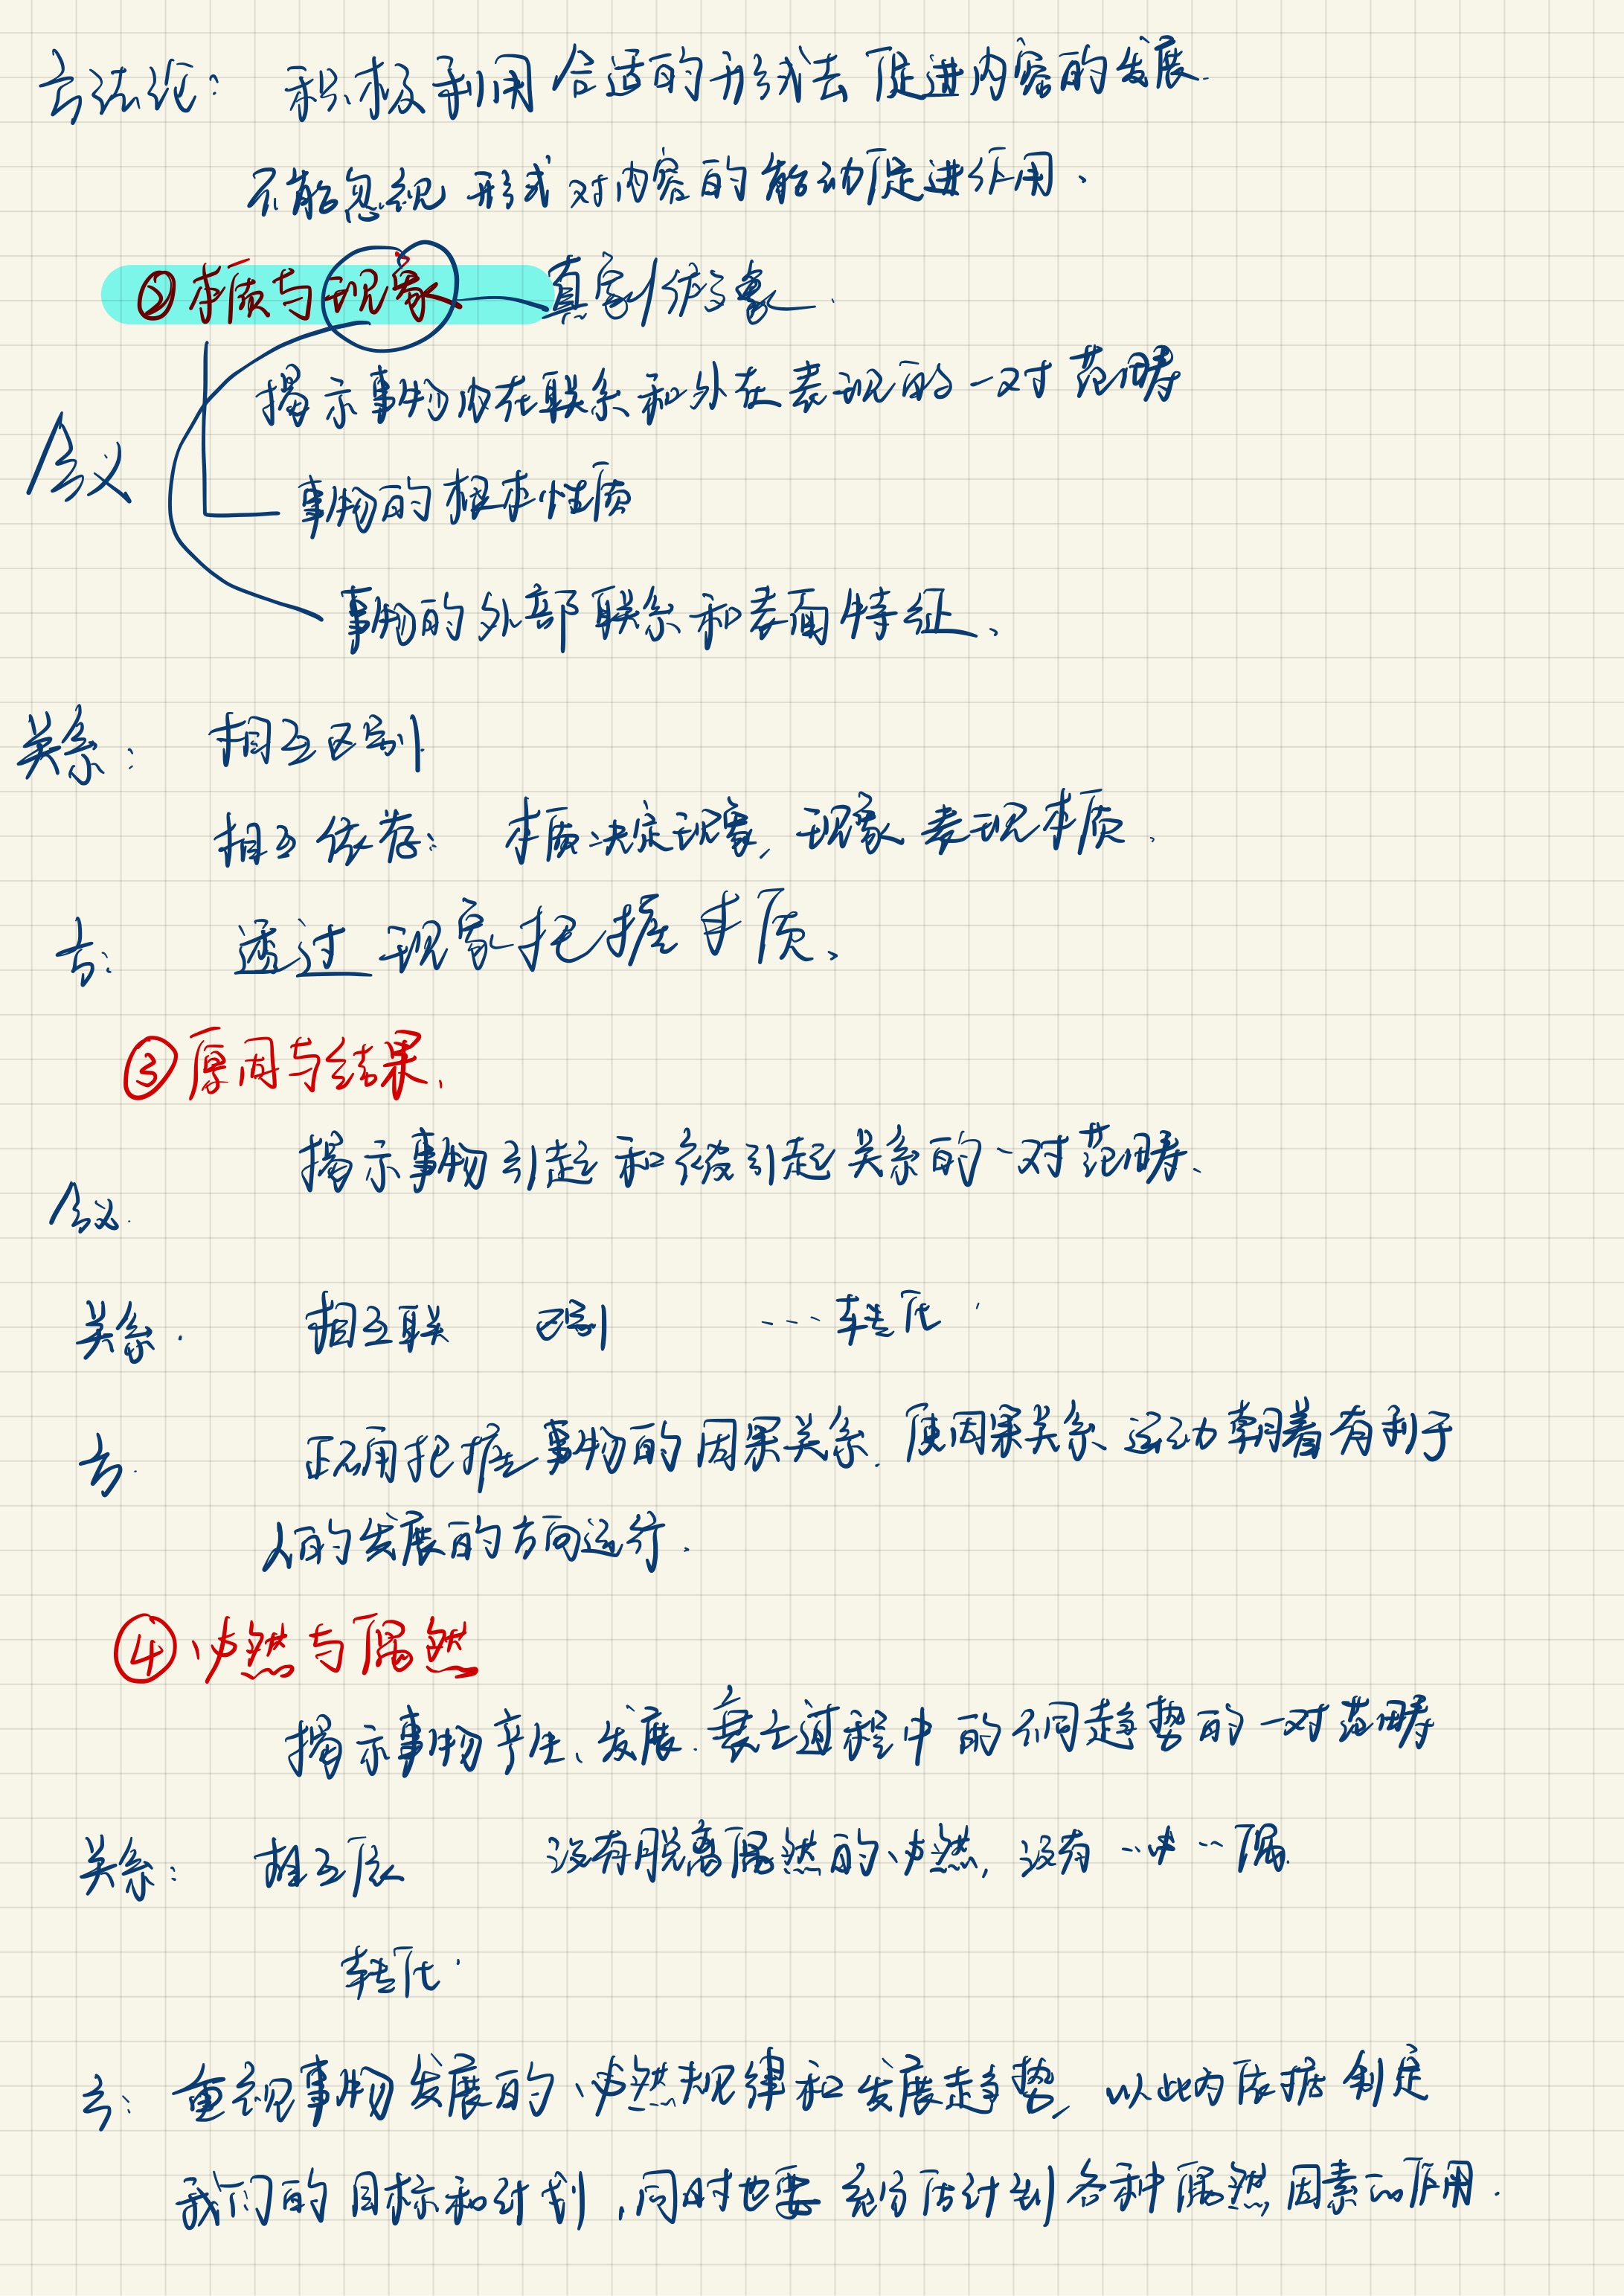 方法论: 积极利用合适的形式去促进内容的发展.
不能忽视形式对内容的能动促进作用、
②本质与现象 真象/假象.
揭示事物内在联系和外在表现的一对范畴
含义
事物的根本性质
事物的外部联系和表面特征、
关系: 相互区别.
相互依存: 本质决定现象, 现象表现本质.
方: 透过现象把握本质、
③原因与结果、
揭示事物引起和被引起关系的一对范畴、
含义.
关系. 相互联 区别 ---转化.
方. 正确把握事物的因果关系. 使因果关系运动朝着有利于
人的发展的方向运行.
④必然与偶然
揭示事物产生、发展.衰亡过程中的不同趋势的一对范畴
关系: 相互依 没有脱离偶然的必然, 没有--必--偶.
转化.
方: 重视事物发展的必然规律和发展趋势, 以此为依据制定
我们的目标和计划,同时也要充分估计到各种偶然因素的作用.